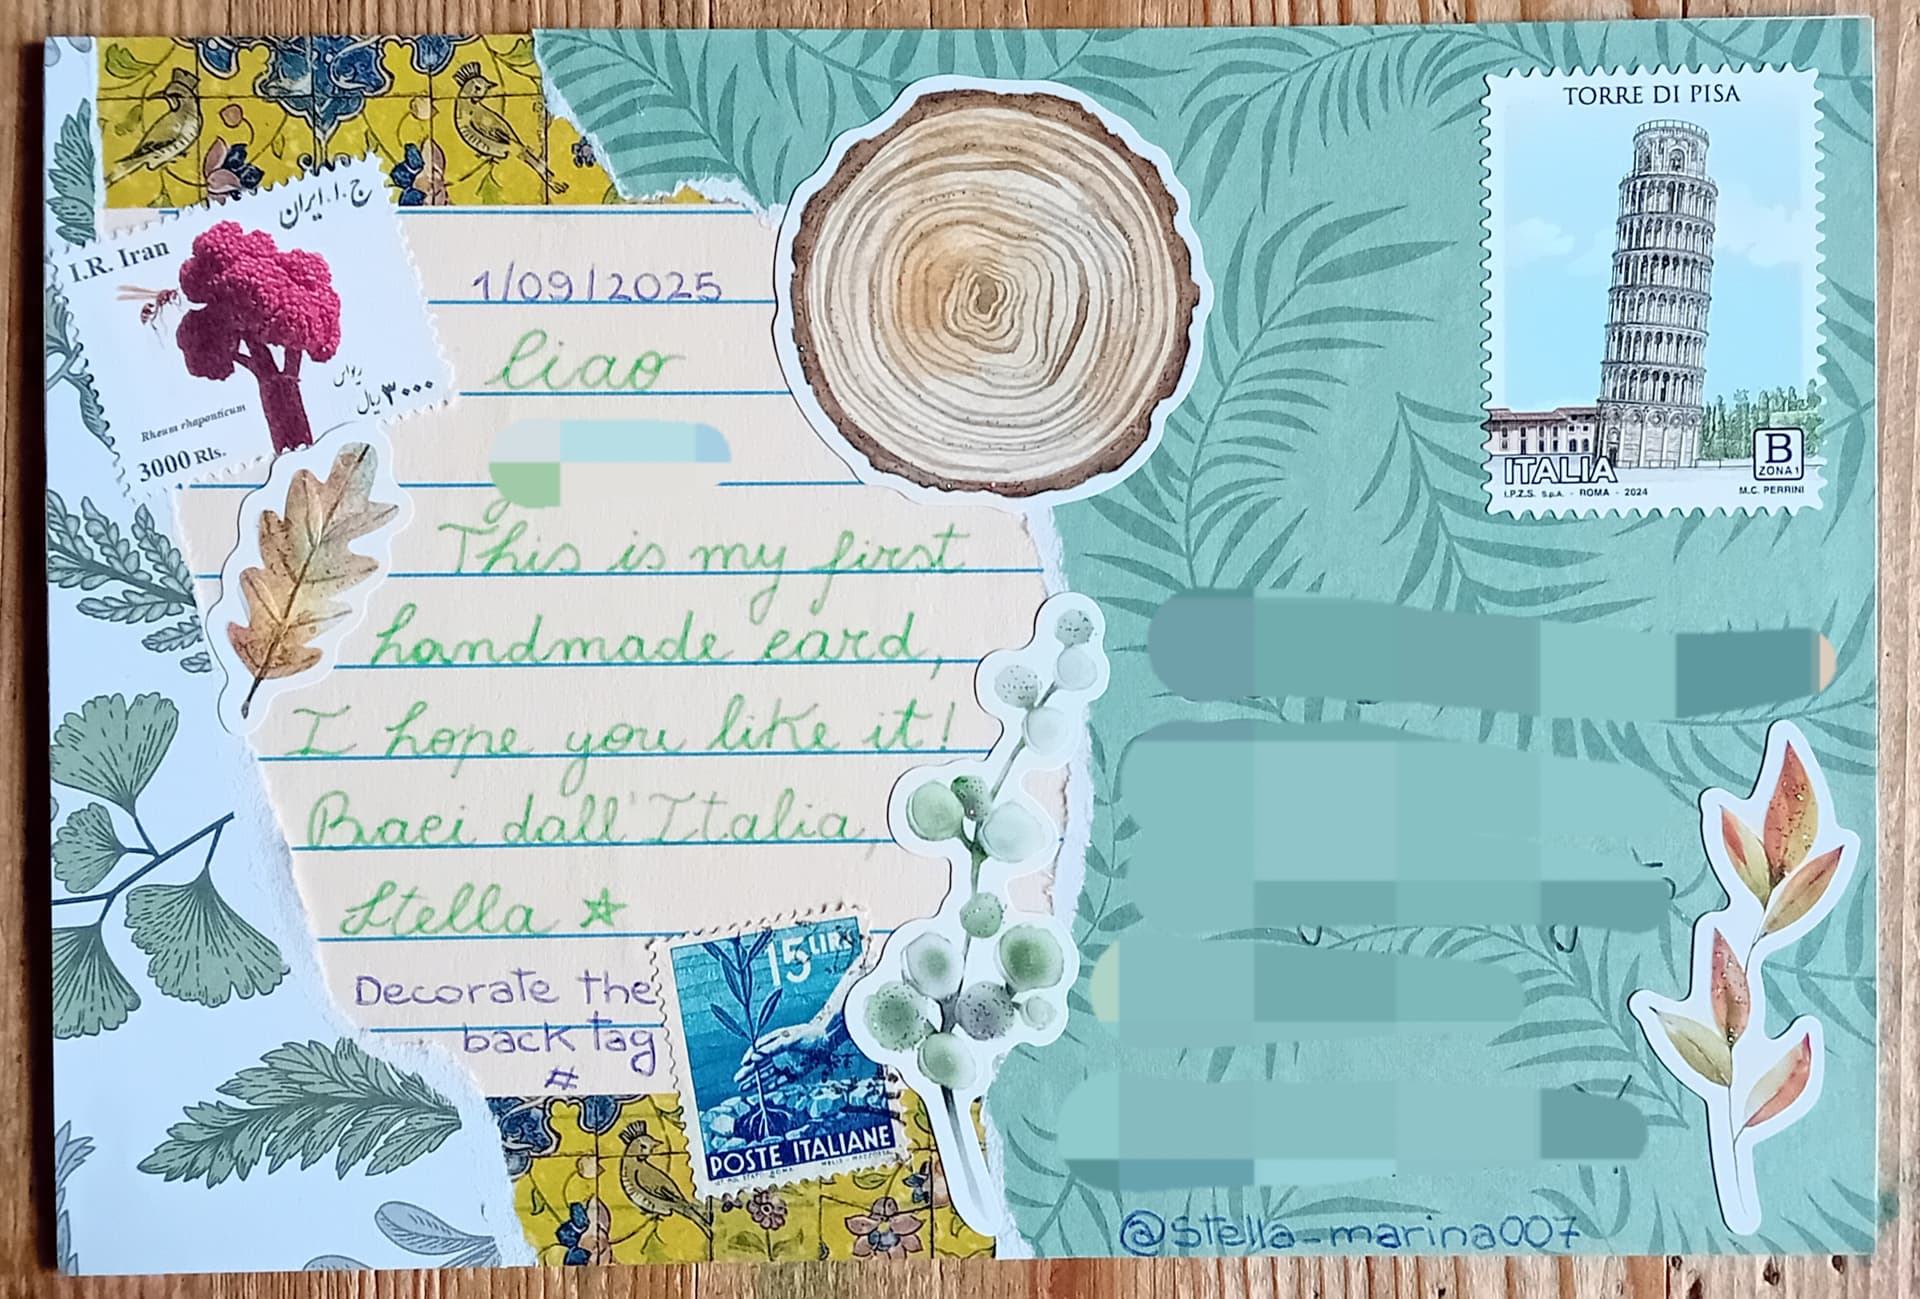 ج.ا.ایران
I.R. Iran
ریواس
۳۰۰۰ ریال
Rheum rhaponticum
3000 Rls.
1/09/2025
Ciao
This is my first
handmade card,
I hope you like it!
Baci dall'Italia,
Stella ☆
Decorate the
back tag
#
15 LIRE
POSTE ITALIANE
TORRE DI PISA
ITALIA
B
ZONA 1
I.P.Z.S. S.p.A. - ROMA - 2024
M.C. PERRINI
@stella_marina007